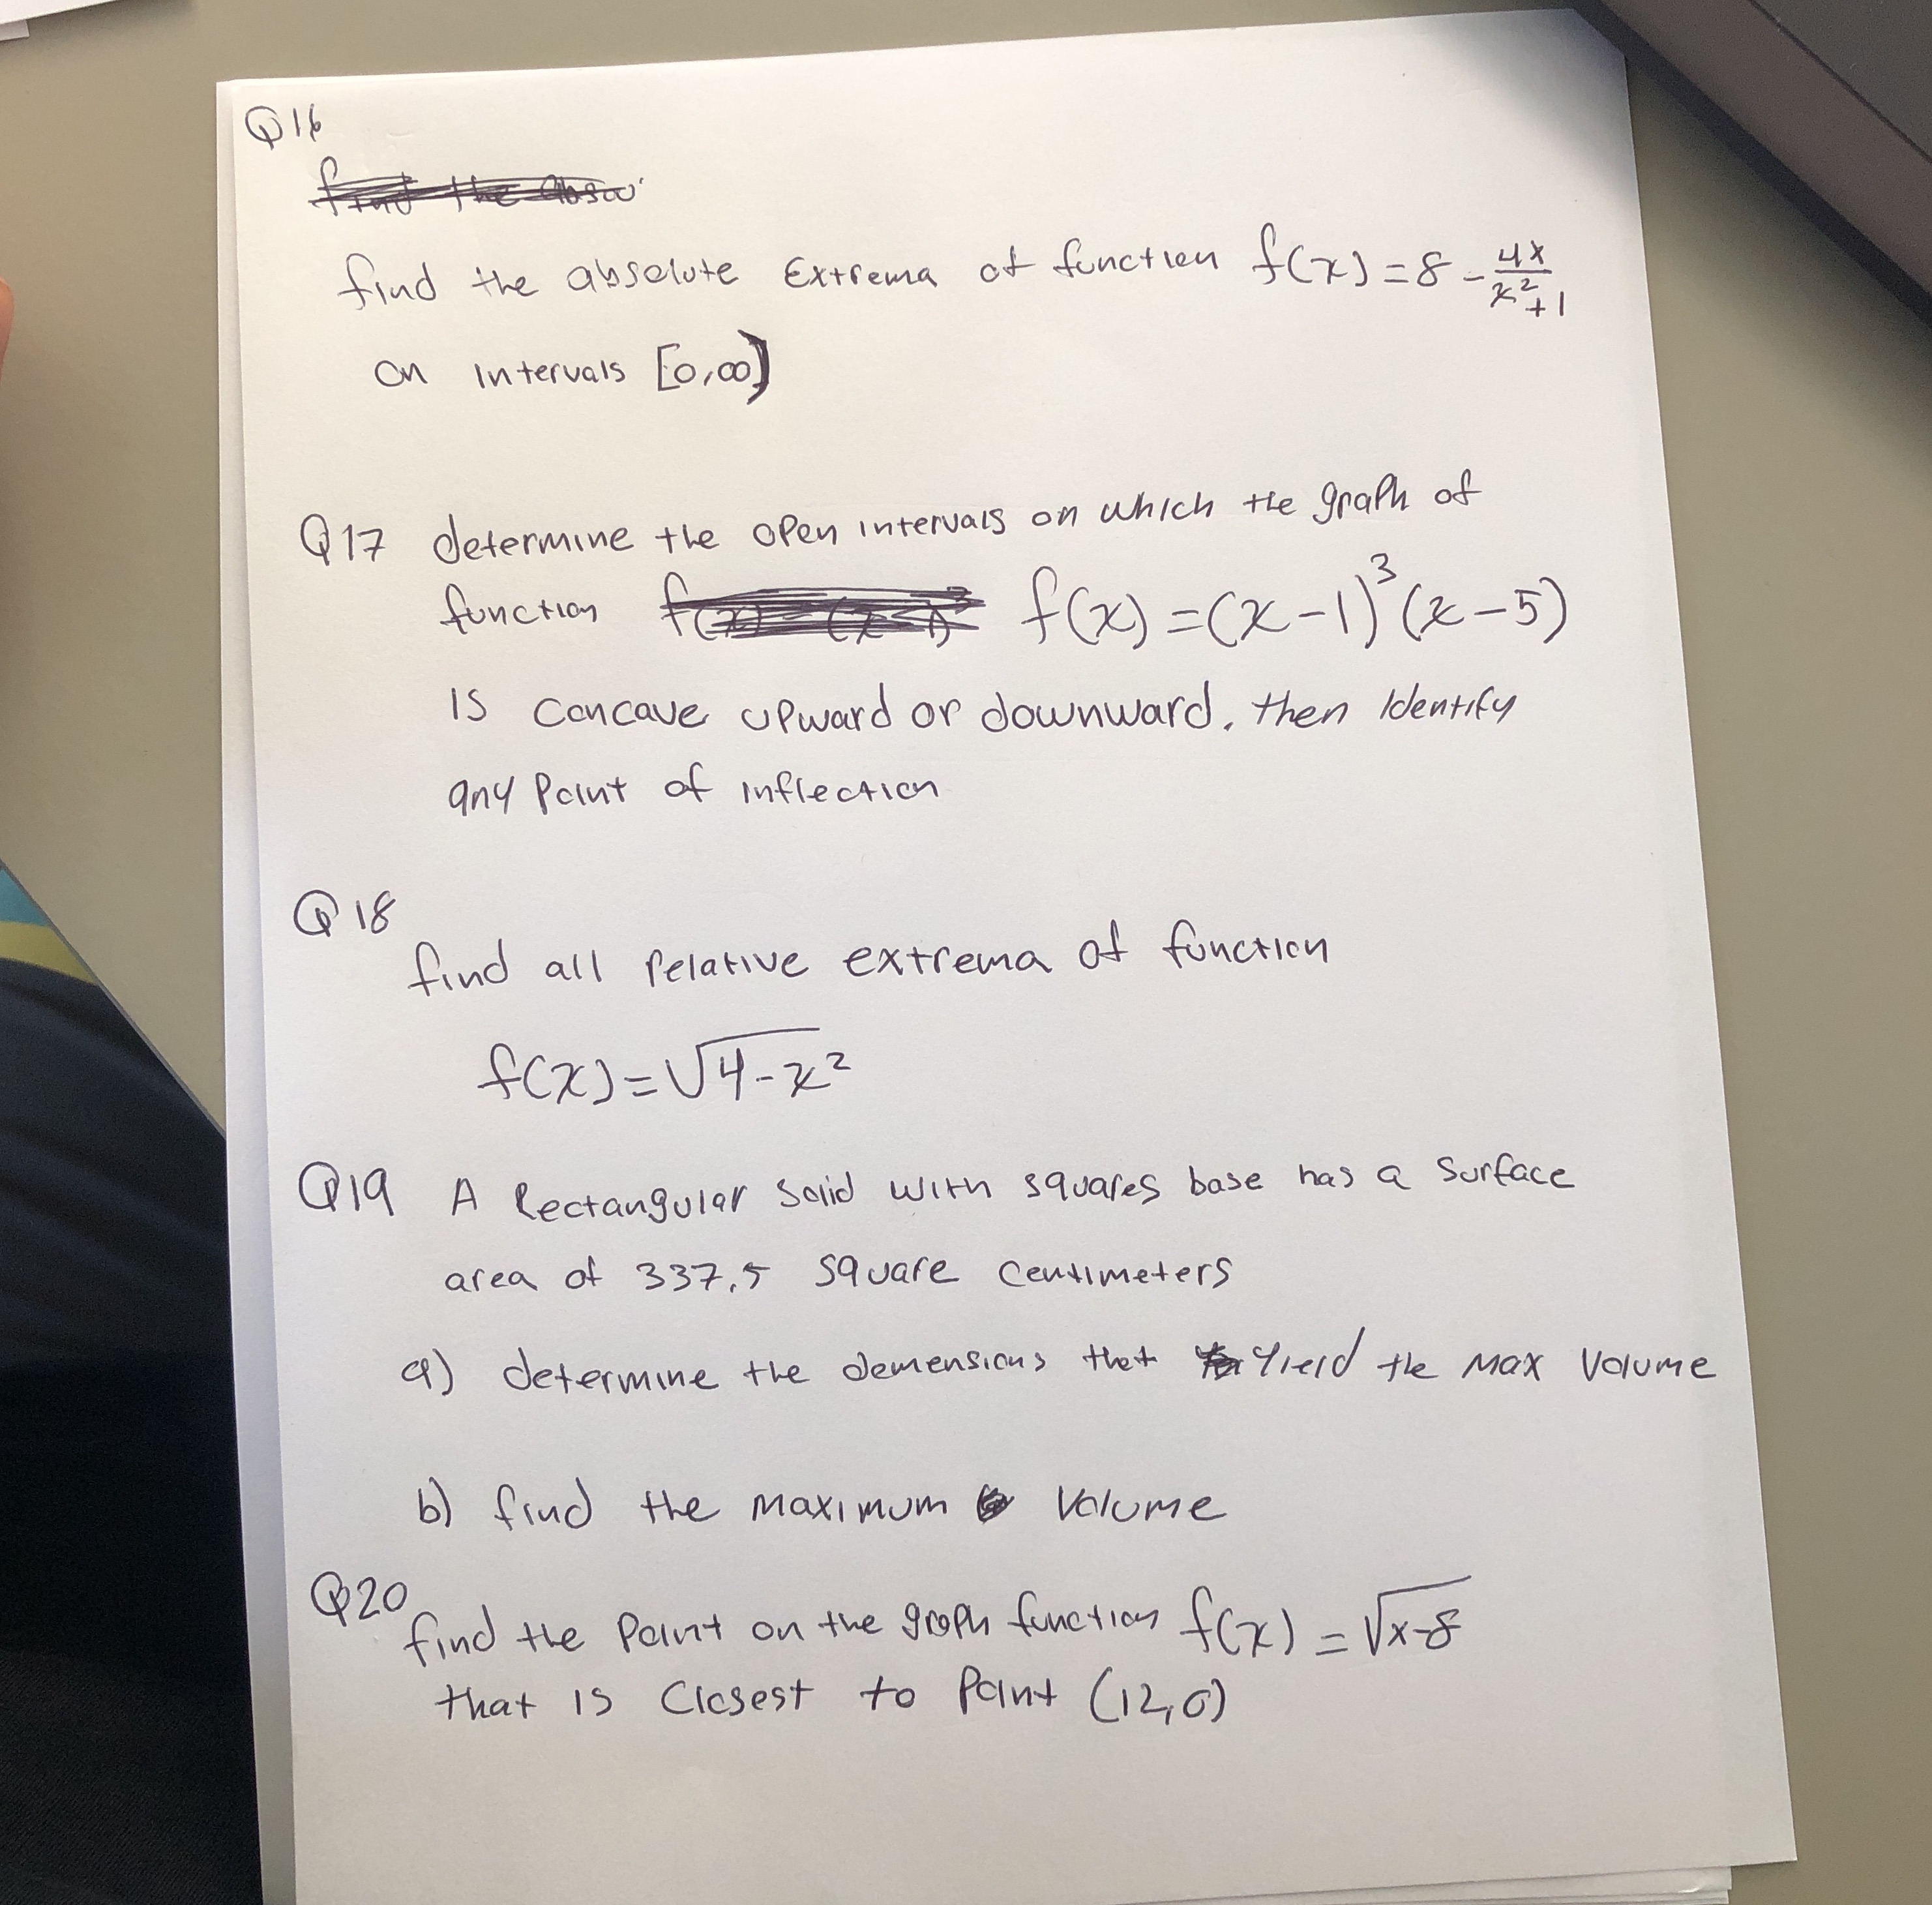 Q16
find the absolute Extrema of function f(x) = 8 - 4x/(x²+1)
on intervals [0,∞)
Q17 determine the open intervals on which the graph of
function f(x) = (x-1)³(x-5)
is concave upward or downward. then identify
any point of inflection
Q18
find all relative extrema of function
f(x) = √4-x²
Q19 A Rectangular solid with squares base has a surface
area of 337.5 square centimeters
a) determine the demensions that yield the max volume
b) find the maximum volume
Q20
find the point on the graph function f(x) = √x-8
that is closest to point (12,0)